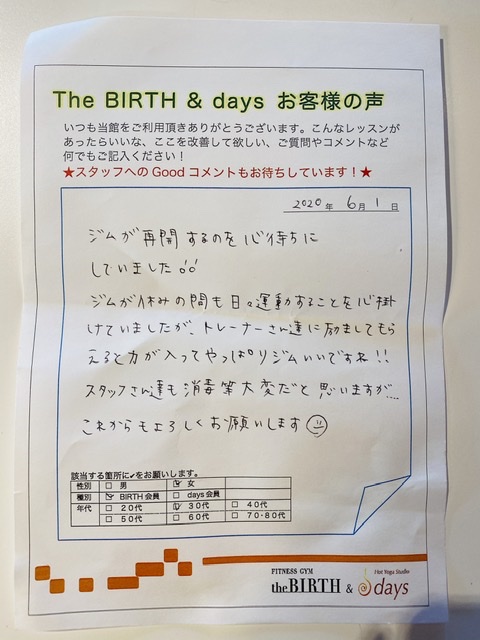 The BIRTH & days お客様の声
いつも当館をご利用頂きありがとうございます。こんなレッスンが
あったらいいな、ここを改善して欲しい、ご質問やコメントなど
何でもご記入ください！
★スタッフへのGoodコメントもお待ちしています！★
2020年 6月 1日
ジムが再開するのを心待ちに
していました!!
ジムが休みの間も日々運動することを心掛
けていましたが、トレーナーさん達に励ましてもら
えると力が入ってやっぱりジムいいですね!!
スタッフさん達も消毒等大変だと思いますが…
これからもよろしくお願いします
該当する箇所に✔をお願いします。
性別 □ 男 ☑ 女
種別 ☑ BIRTH会員 □ days会員
年代 □ 20代 ☑ 30代 □ 40代
□ 50代 □ 60代 □ 70・80代
FITNESS GYM Hot Yoga Studio
the BIRTH & days